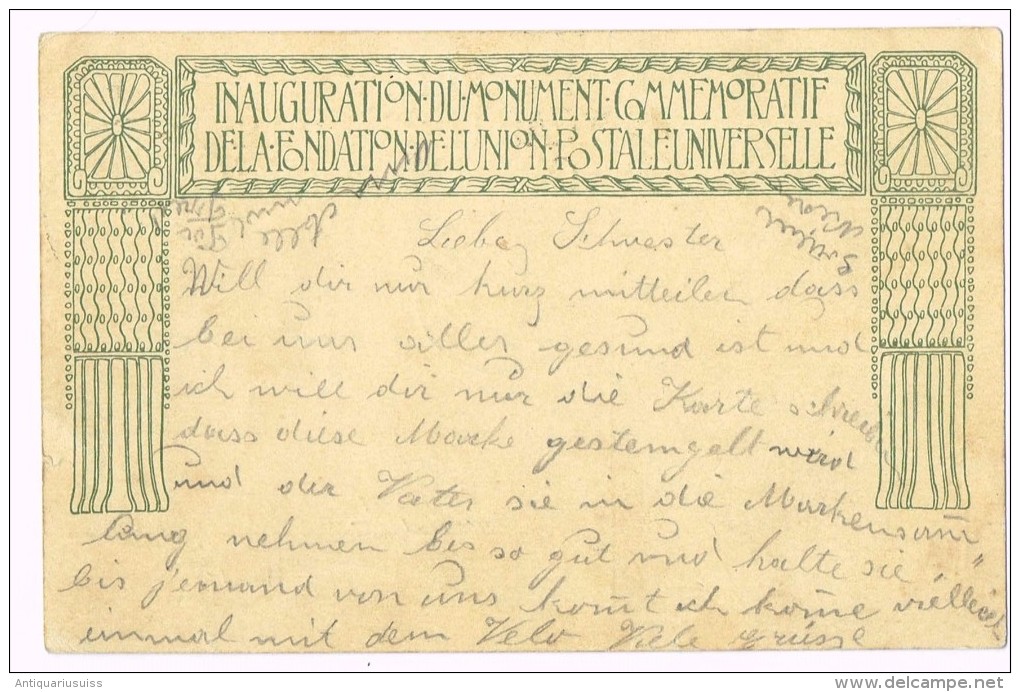 INAUGURATION·DU·MONUMENT·COMMEMORATIF
DE LA·FONDATION·DE L'UNION·POSTALE UNIVERSELLE
Liebe Schwester
Will dir nur kurz mitteilen dass
bei uns alles gesund ist und
ich will dir nur die Karte schreiben
dass diese Marke gestempelt wird
und der Vater sie in die Markensam̄
lung nehmen bis so gut und halte sie
bis jemand von uns kom̄t ich kom̄e vielleicht
einmal mit dem Velo Viele Grüsse
Antiquariusuiss
delcampe.net